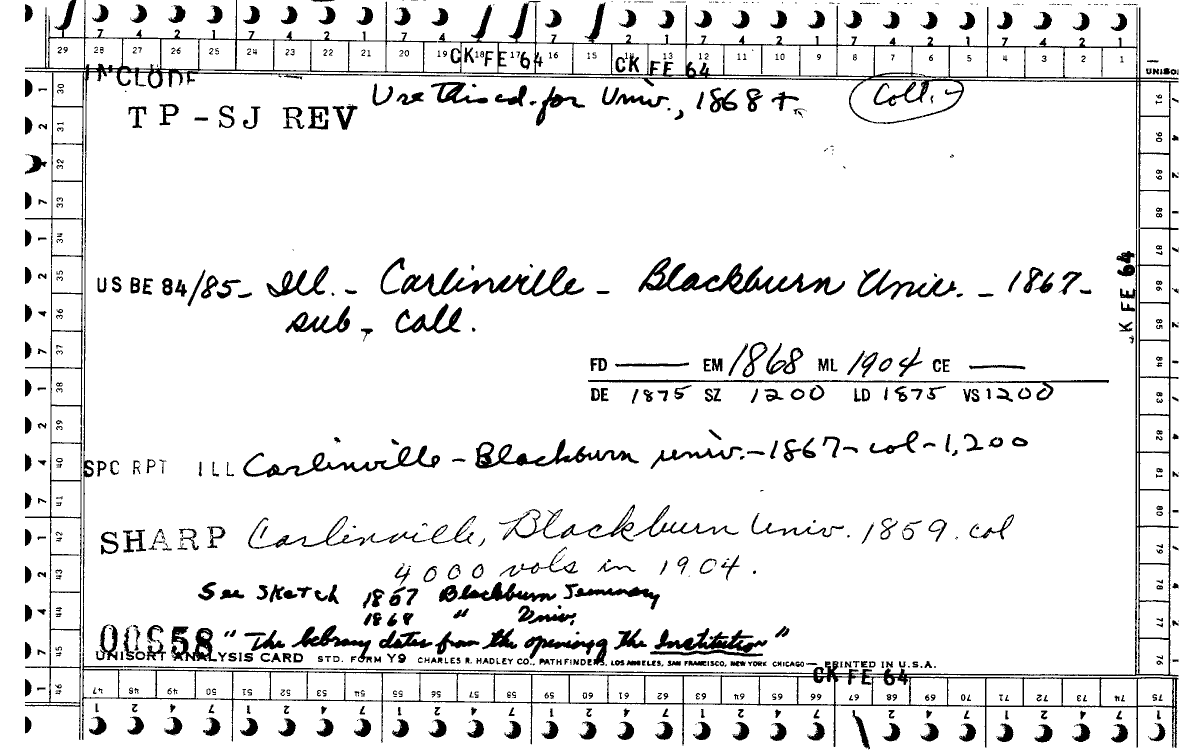 7 4 2 1 7 4 2 1 7 4 2 1 7 4 2 1 7 4 2 1 7 4 2 1
29 28 27 26 25 24 23 22 21 20 19 18 17 16 15 14 13 12 11 10 9 8 7 6 5 4 3 2 1
CK FE '64 CK FE 64
UNISO
INCLUDE
Use this cd. for Univ., 1868+. Coll.
TP-SJ REV
US BE 84/85- Ill. - Carlinville - Blackburn Univ. - 1867-
sub - Coll.
K FE 64
FD —— EM 1868 ML 1904 CE ——
DE 1875 SZ 1200 LD 1875 VS 1200
SPC RPT ILL Carlinville - Blackburn univ. - 1867 - col - 1,200
SHARP Carlinville, Blackburn Univ. 1859. col
4000 vols in 1904.
See Sketch 1857 Blackburn Seminary
1868 " Univ.
"The library dates from the opening of the Institution"
UNISORT ANALYSIS CARD STD. FORM Y9 CHARLES R. HADLEY CO., PATHFINDERS, LOS ANGELES, SAN FRANCISCO, NEW YORK CHICAGO — PRINTED IN U.S.A.
CK FE 64
30 31 32 33 34 35 36 37 38 39 40 41 42 43 44 45 46
47 48 49 50 51 52 53 54 55 56 57 58 59 60 61 62 63 64 65 66 67 68 69 70 71 72 73 74 75
91 90 89 88 87 86 85 84 83 82 81 80 79 78 77 76